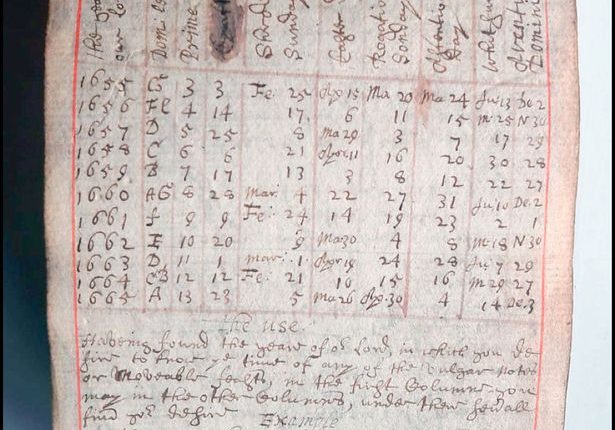 our Lo Prime Sunday Easter Rogation Sonday Day Whitsun
1655 G 3 3 Fe 25 Apr 15 Ma 20 Ma 24 Ju 13 De 2
1656 FE 4 14 17 6 11 15 m 25 N 30
1657 D 5 25 8 Ma 29 3 7 17 29
1658 C 6 6 21 Apr 11 16 20 30 28
1659 B 7 17 13 3 8 12 22 27
1660 AG 8 28 Mar: 4 22 27 31 Ju 10 De 2
1661 f 9 9 Fe: 24 14 19 23 2 1
1662 E 10 20 9 Ma 30 4 8 M: 18 N 30
1663 D 11 1 mar: 1 Apr 19 24 28 Ju 7 29
1664 CB 12 12 Fe: 21 10 15 16 m 29 27
1665 A 13 23 5 Ma 26 Ap. 30 4 14 De. 3
The use
Haveing found the yeare of or Lord, in which you de
sire to know ye time of any of the vulgar notes
or Moveable feasts, in the first Columne you
may in the other Columns, under their severall
find yor desire
Example